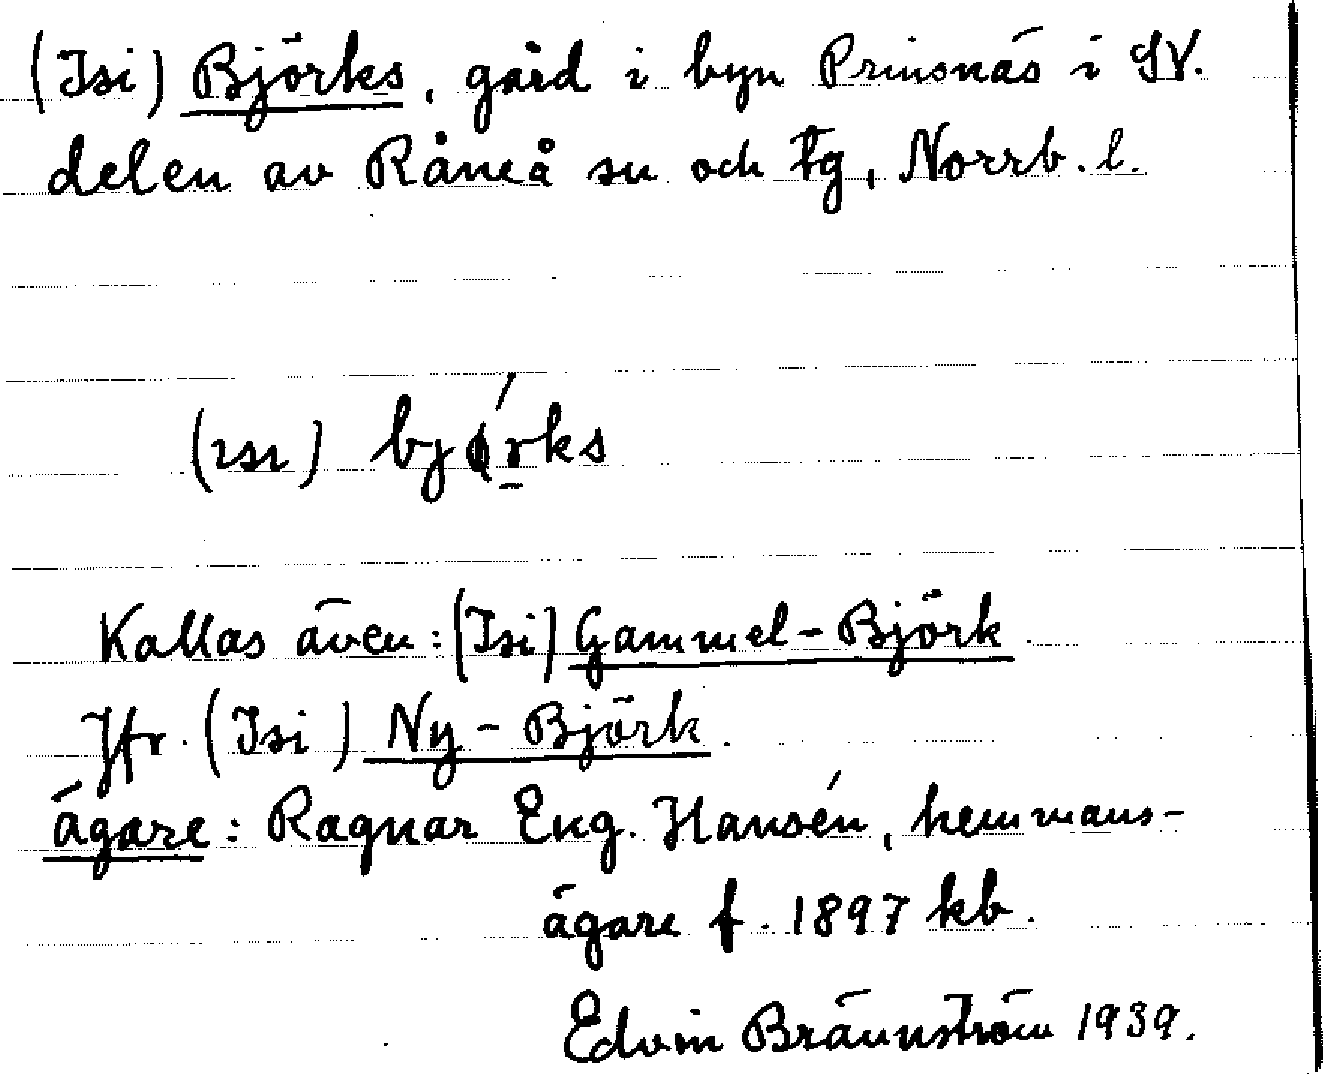 (Isi) Björks, gård i byn Prinsnäs i SV.
delen av Råneå sn och tg, Norrb. l.
(ısı) bjö́rks
Kallas även: (Isi) Gammel-Björk
Jfr. (Isi) Ny-Björk.
ägare: Ragnar Eug. Hansén, hemmans-
ägare f. 1897 kb.
Edvin Brännström 1939.